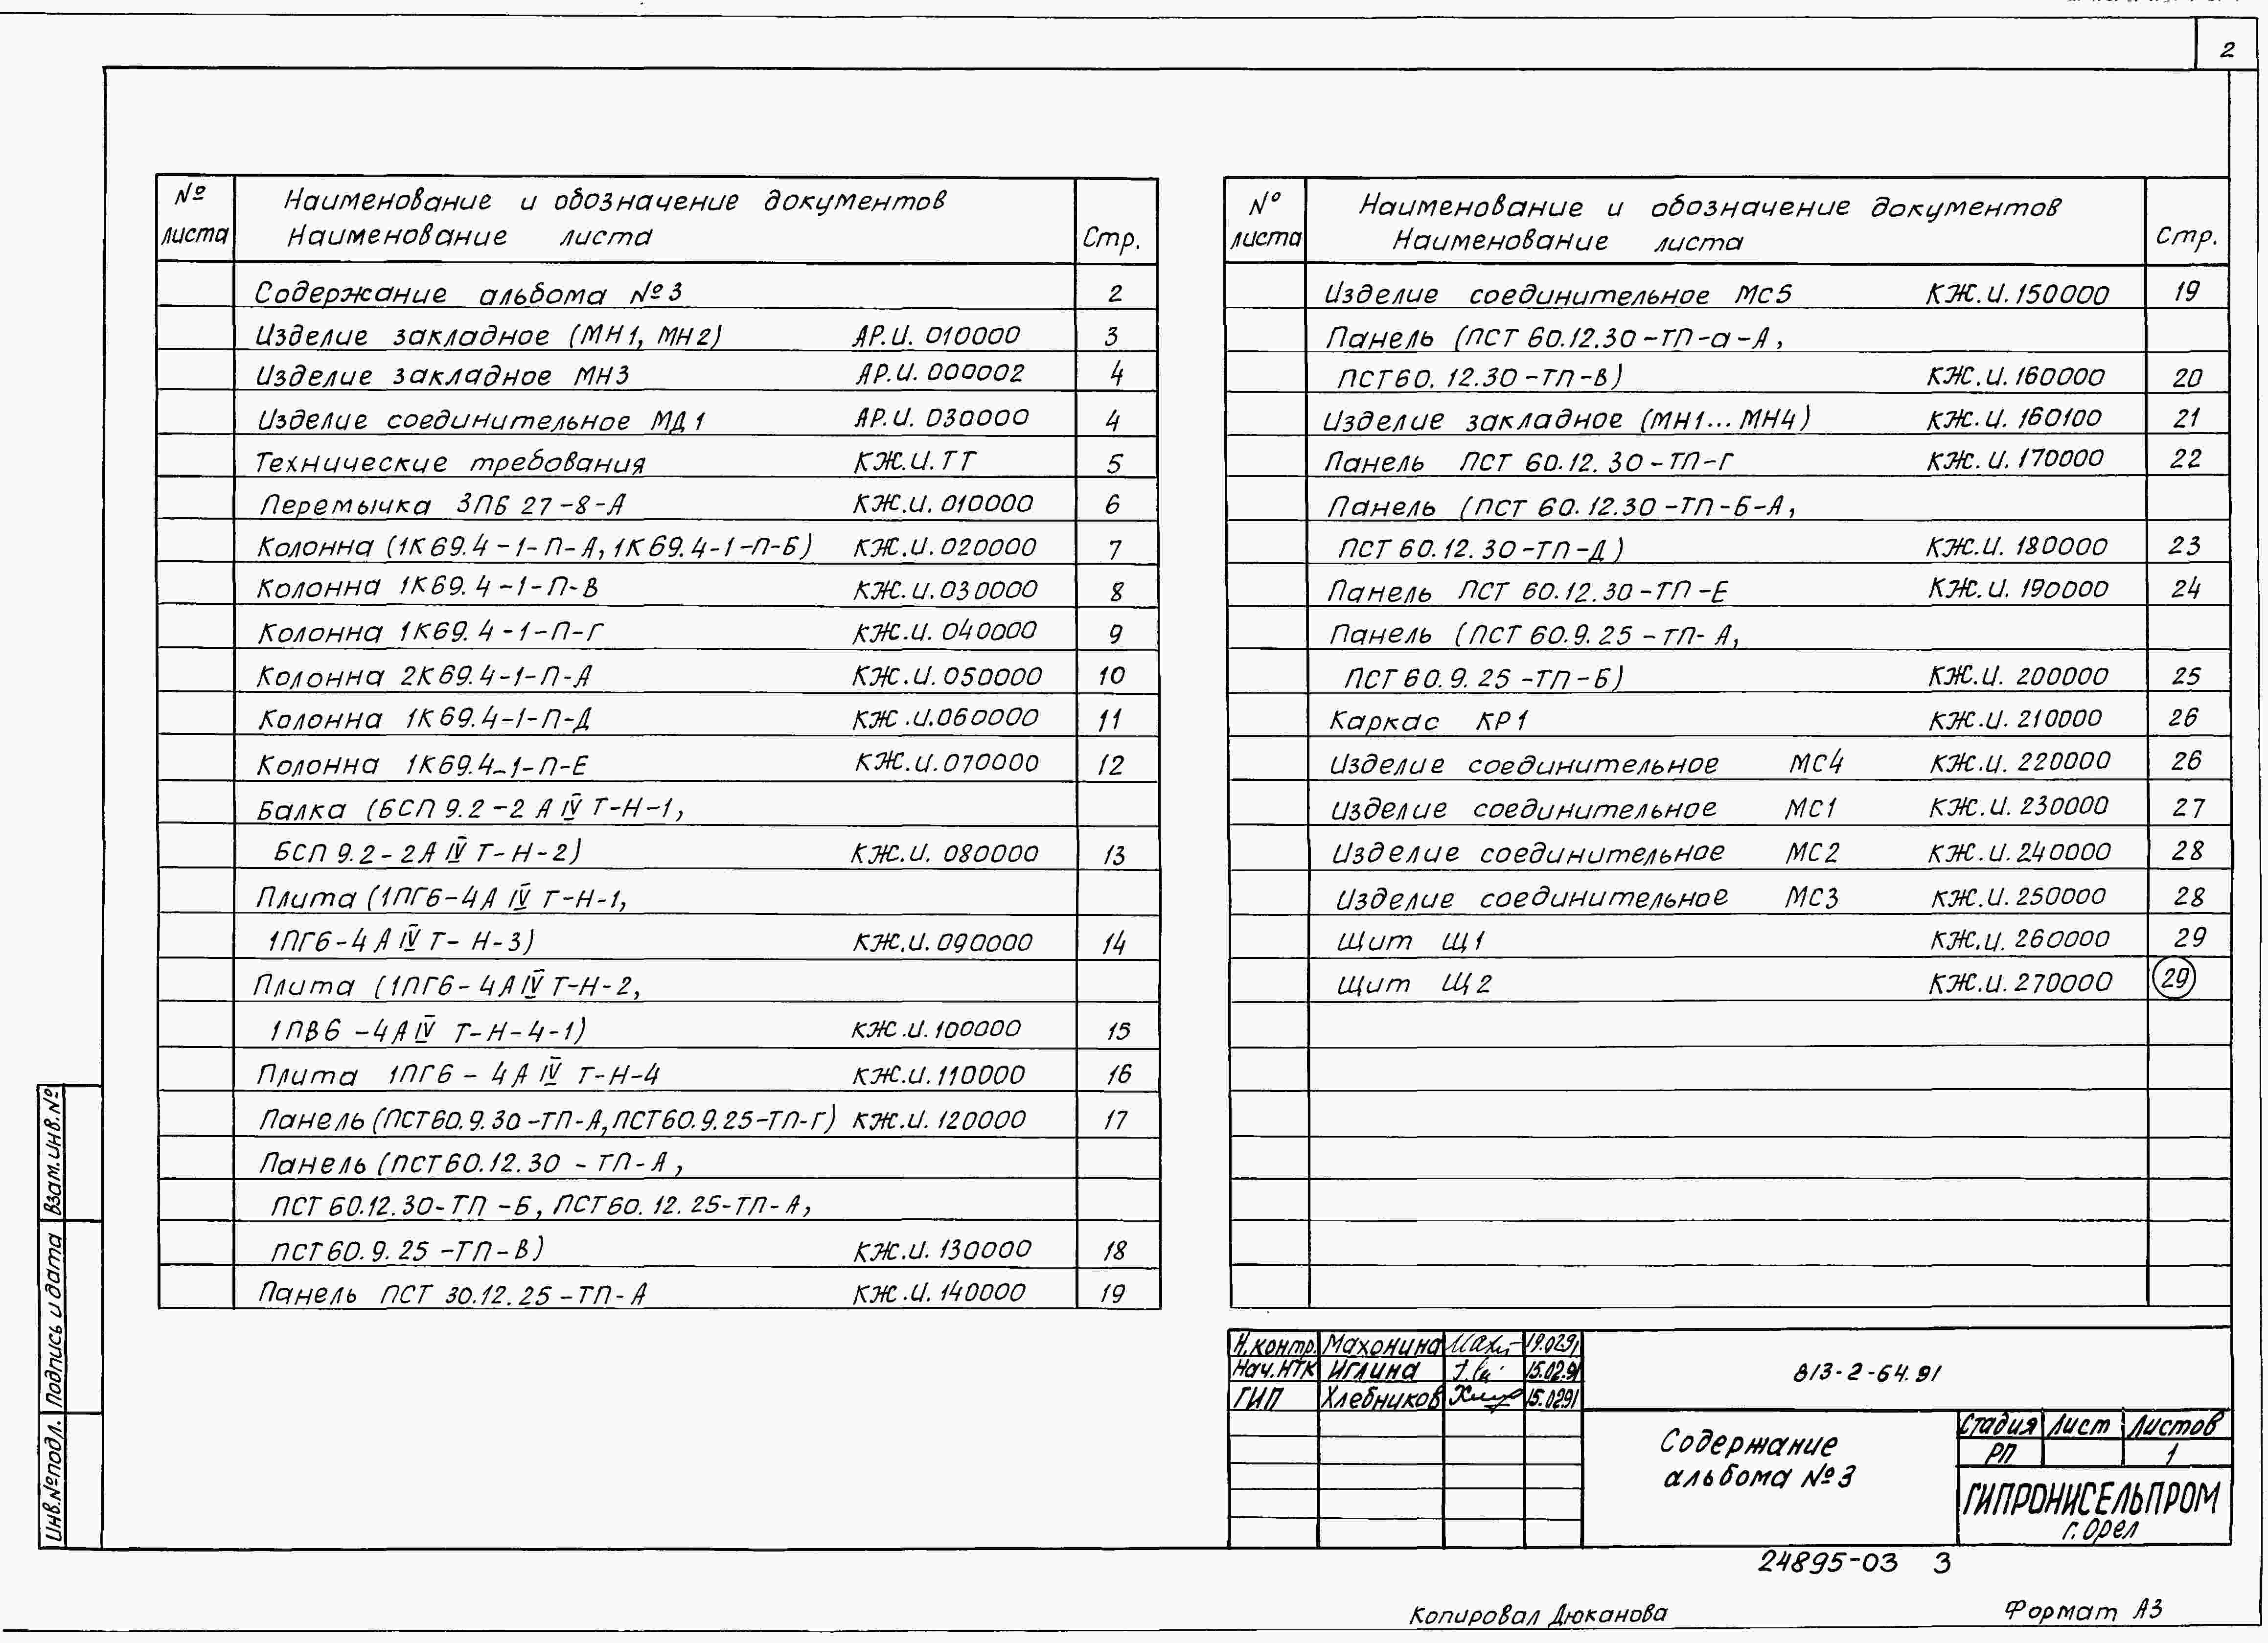 2
№ листа Наименование и обозначение документов Наименование листа Стр.
Содержание альбома №3 2
Изделие закладное (МН1, МН2) АР.И. 010000 3
Изделие закладное МН3 АР.И. 000002 4
Изделие соединительное МД1 АР.И. 030000 4
Технические требования КЖ.И.ТТ 5
Перемычка 3ПБ 27-8-А КЖ.И. 010000 6
Колонна (1К69.4-1-П-А, 1К69.4-1-П-Б) КЖ.И.020000 7
Колонна 1К69.4-1-П-В КЖ.И.030000 8
Колонна 1К69.4-1-П-Г КЖ.И. 040000 9
Колонна 2К69.4-1-П-А КЖ.И.050000 10
Колонна 1К69.4-1-П-Д КЖ.И.060000 11
Колонна 1К69.4-1-П-Е КЖ.И.070000 12
Балка (БСП 9.2-2 А IV Т-Н-1,
БСП 9.2-2А IV Т-Н-2) КЖ.И. 080000 13
Плита (1ПГ6-4А IV Т-Н-1,
1ПГ6-4А IV Т-Н-3) КЖ.И.090000 14
Плита (1ПГ6-4А IV Т-Н-2,
1ПВ6-4А IV Т-Н-4-1) КЖ.И.100000 15
Плита 1ПГ6-4А IV Т-Н-4 КЖ.И.110000 16
Панель (ПСТ60.9.30-ТП-А, ПСТ60.9.25-ТП-Г) КЖ.И. 120000 17
Панель (ПСТ60.12.30-ТП-А,
ПСТ 60.12.30-ТП-Б, ПСТ60.12.25-ТП-А,
ПСТ60.9.25-ТП-В) КЖ.И. 130000 18
Панель ПСТ 30.12.25-ТП-А КЖ.И. 140000 19
№ листа Наименование и обозначение документов Наименование листа Стр.
Изделие соединительное МС5 КЖ.И.150000 19
Панель (ПСТ 60.12.30-ТП-а-А,
ПСТ60.12.30-ТП-В) КЖ.И.160000 20
Изделие закладное (МН1...МН4) КЖ.И. 160100 21
Панель ПСТ 60.12.30-ТП-Г КЖ.И.170000 22
Панель (ПСТ 60.12.30-ТП-Б-А,
ПСТ 60.12.30-ТП-Д) КЖ.И. 180000 23
Панель ПСТ 60.12.30-ТП-Е КЖ.И. 190000 24
Панель (ПСТ 60.9.25-ТП-А,
ПСТ 60.9.25-ТП-Б) КЖ.И. 200000 25
Каркас КР1 КЖ.И. 210000 26
Изделие соединительное МС4 КЖ.И. 220000 26
Изделие соединительное МС1 КЖ.И. 230000 27
Изделие соединительное МС2 КЖ.И.240000 28
Изделие соединительное МС3 КЖ.И.250000 28
Щит Щ1 КЖ.И. 260000 29
Щит Щ2 КЖ.И.270000 29
Взам.инв.№
Подпись и дата
Инв.№подл.
Н.контр. Махонина 19.0291
Нач.НТК Иглина 15.02.91
ГИП Хлебников 15.0291
813-2-64.91
Содержание
альбома №3
Стадия Лист Листов
РП 1
ГИПРОНИСЕЛЬПРОМ
г. Орел
24895-03 3
Копировал Дюканова Формат А3